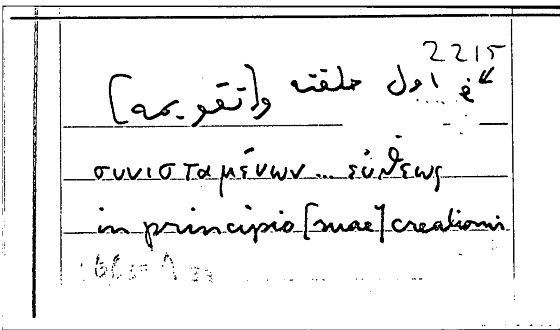 2215
في اول خلقته و[تقويمه]
συνισταμένων... εὐθέως
in principio [suae] creationis